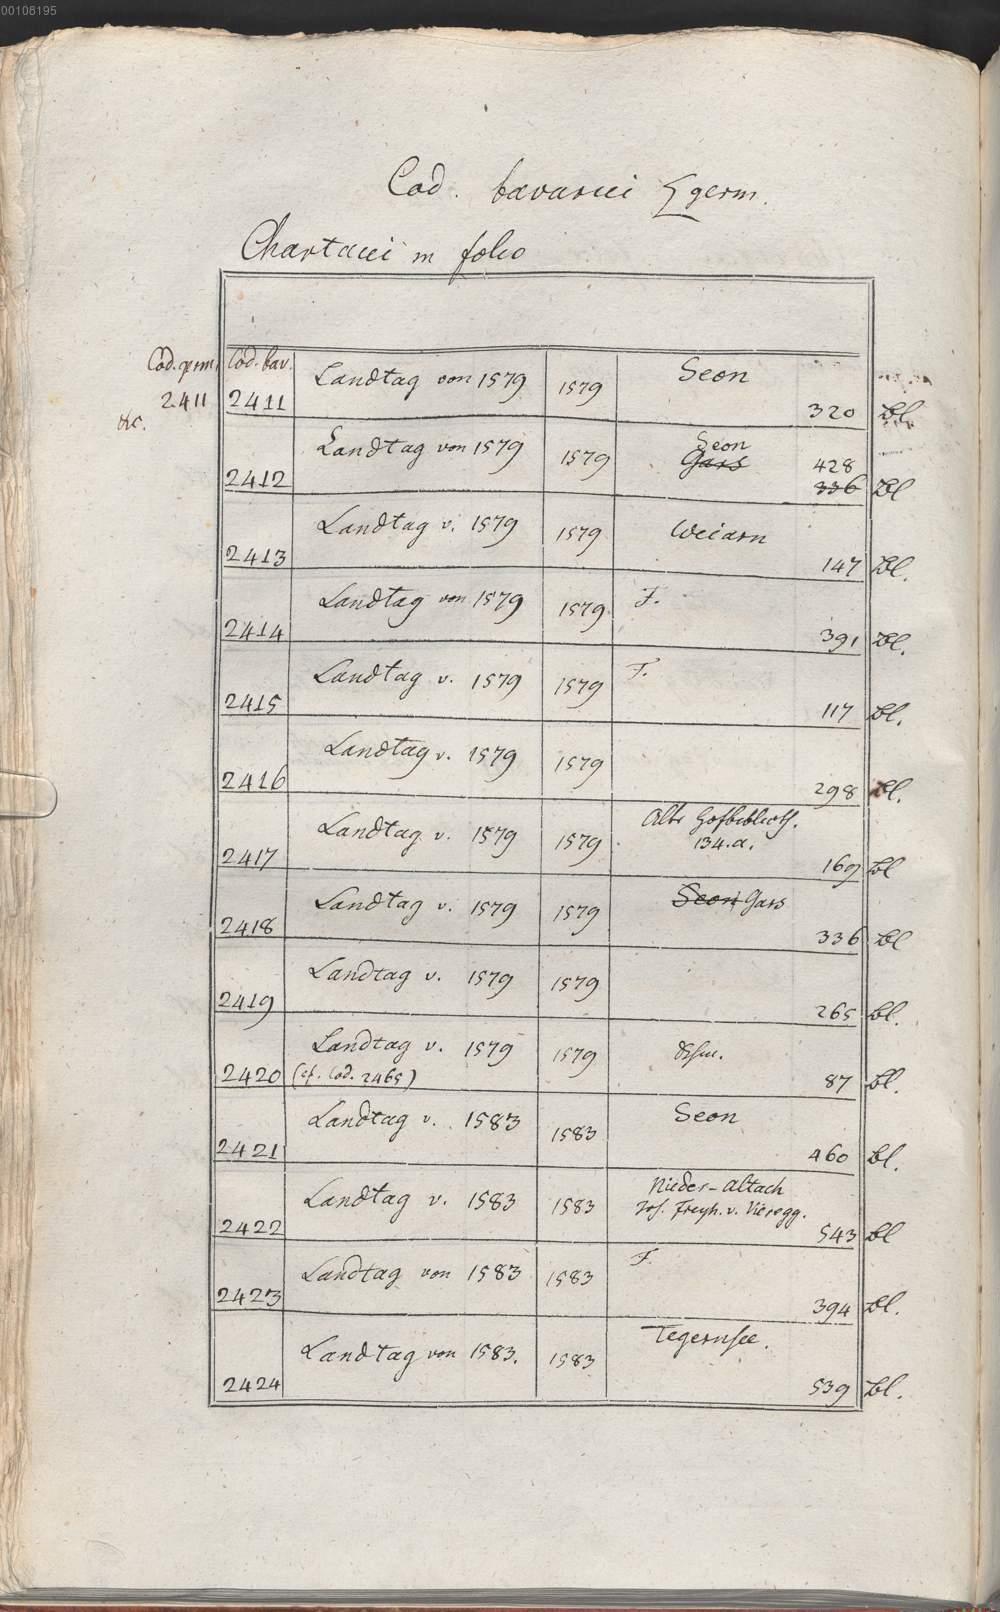 00108195
Cod. bavarici germ.
Chartacei in folio
Cod. germ. Cod. bav.
2411 &c. 2411 Landtag von 1579 1579 Seon 320 Bl
2412 Landtag von 1579 1579 Seon Gars 428 336 Bl
2413 Landtag v. 1579 1579 Weiarn 147 Bl.
2414 Landtag von 1579 1579 F. 391 Bl.
2415 Landtag v. 1579 1579 F. 117 Bl.
2416 Landtag v. 1579 1579 298 Bl.
2417 Landtag v. 1579 1579 Alte Hofbiblioth. 134.a. 169 Bl
2418 Landtag v. 1579 1579 Seon Gars 336 Bl
2419 Landtag v. 1579 1579 265 Bl.
2420 Landtag v. 1579 1579 87 Bl.
(cf. Cod. 2465)
2421 Landtag v. 1583 1583 Seon 460 Bl.
2422 Landtag v. 1583 1583 Nieder-Altach
Jos. Freyh. v. Vieregg. 543 Bl
2423 Landtag von 1583 1583 F. 394 Bl.
2424 Landtag von 1583. 1583 Tegernsee. 539 Bl.